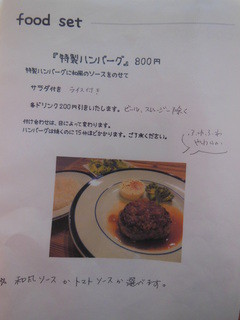 food set
『特製ハンバーグ』 800円
特製ハンバーグに和風のソースをのせて
サラダ付き ライス付き
各ドリンク200円引きいたします。
付け合わせは、日によって変わります。
ハンバーグは焼くのに15分ほどかかります。ご了承ください。
和風ソース か トマトソース か 選べます。